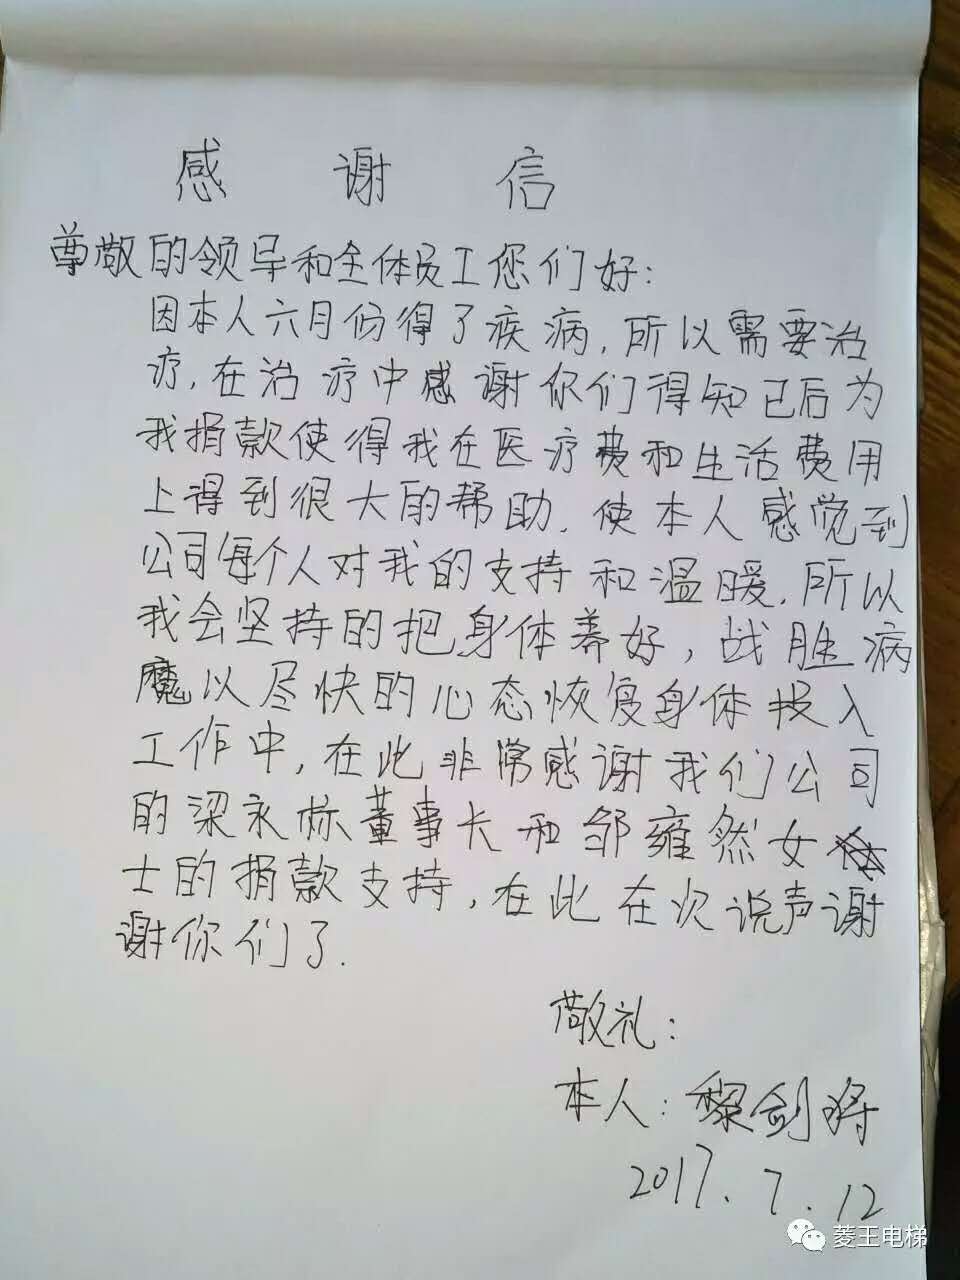 感 谢 信
尊敬的领导和全体员工您们好：
因本人六月份得了疾病，所以需要治
疗，在治疗中感谢你们得知已后为
我捐款使得我在医疗费和生活费用
上得到很大的帮助，使本人感觉到
公司每个人对我的支持和温暖，所以
我会坚持的把身体养好，战胜病
魔以尽快的心态恢复身体投入
工作中，在此非常感谢我们公司
的梁永标董事长和邹雍然女
士的捐款支持，在此在次说声谢
谢你们了.
敬礼：
本人：黎剑将
2017.7.12
菱王电梯